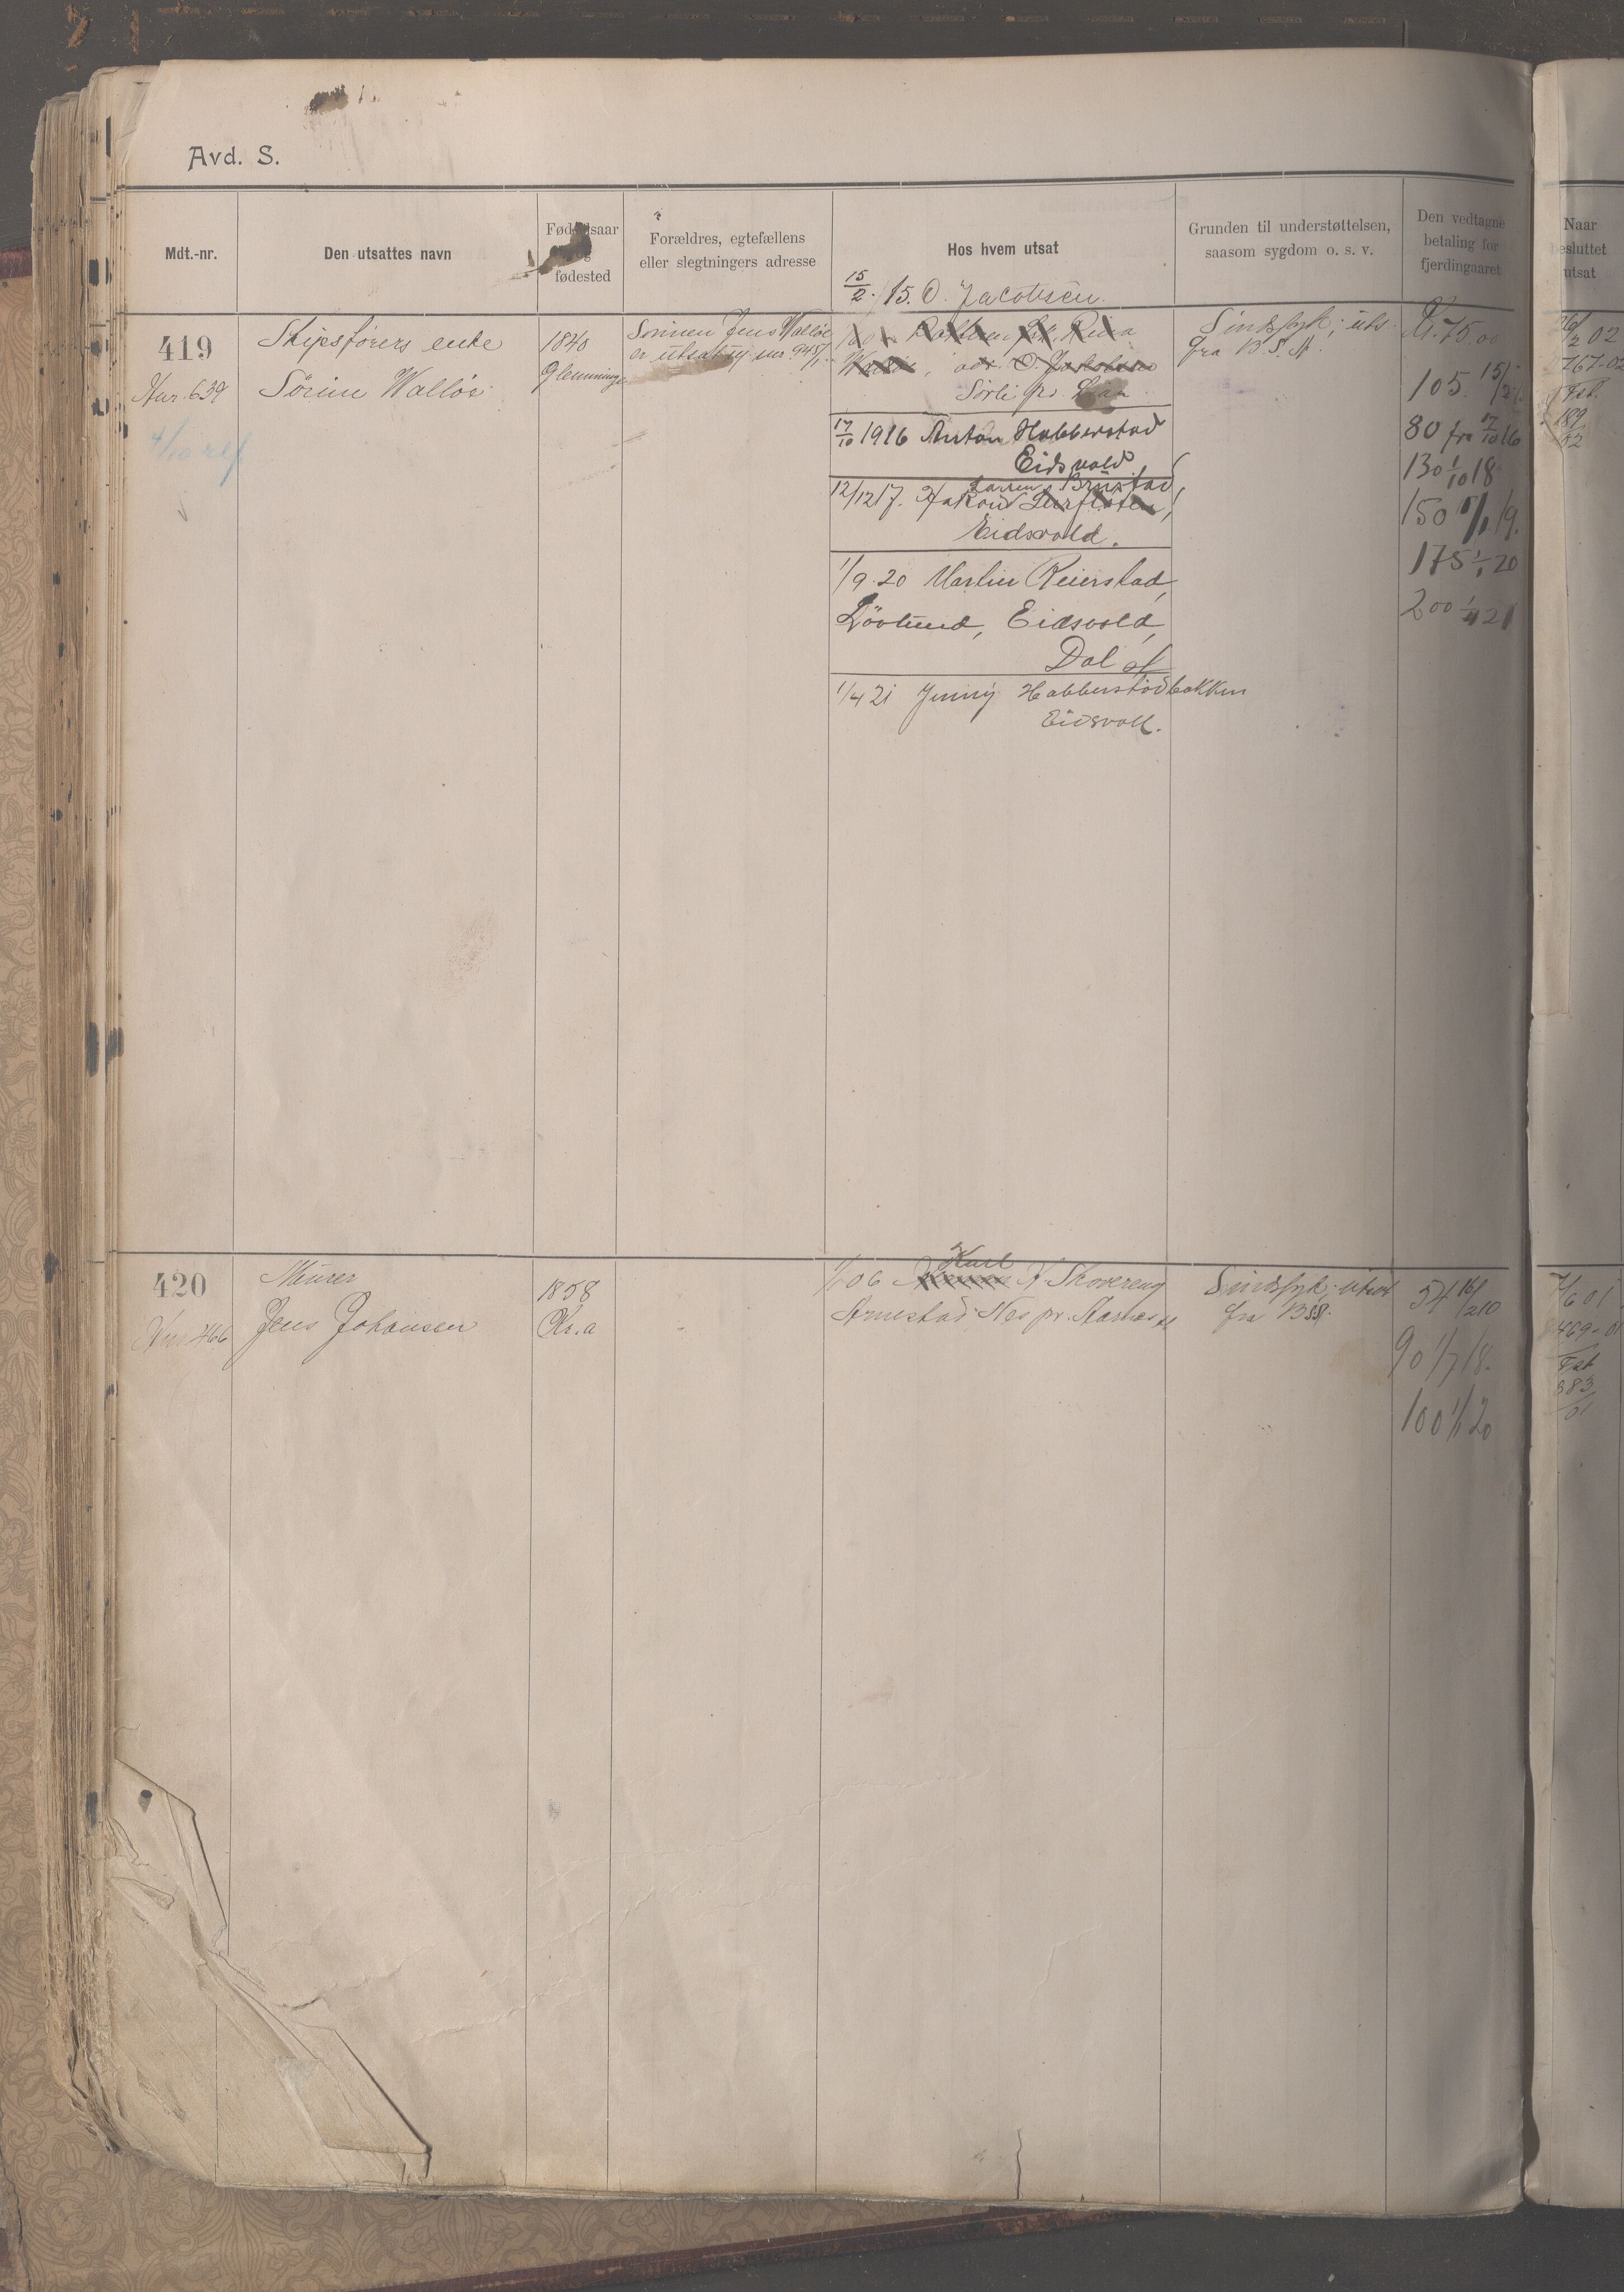 Avd. S.
Mdt.-nr.
Den utsattes navn
Fødselsaar og fødested
Forældres, egtefællens
eller slegtningers adresse
Hos hvem utsat
Grunden til understøttelsen,
saasom sygdom o. s. v.
Den vedtagne
betaling for
fjerdingaaret
Naar
besluttet
utsat
15/2. 15. O. Jacobsen.
419
Skipsførers enke
1840
Sønnen Jens Walløe
er utsat
Rina
Sindssyk; uts.
fra B. S. A.
Kr. 75.00
26/2 02
767-02
Nur. 639
Sørine Walløe
Glemminge
adr. O. Jakobsen
Sørli pr.
105. 15/2
Fat.
189
02
4/10
17/10 1916 Anton Habberstad
Eidsvold
80 fra 17/10 16
12/12 17. Haakon Larsen Brustad,
Eidsvold.
130 1/10 18
150 1/1 19.
1/9 20 Martin Reierstad,
Lövlund, Eidsvold,
Dal st
175 1/1 20
200 1/4 21
1/4 21 Jenny Habberstadbakken
Eidsvoll.
420
Murer
Jens Johansen
1858
Kr.a
Karl
06 K. Skovereng
Arnestad Nes pr. Aarnes st
Sindssyk; utsat
fra BSA.
54 16/2 10
90 1/7 18.
100 1/1 20
7/6 01
469-01
Fat
383
01